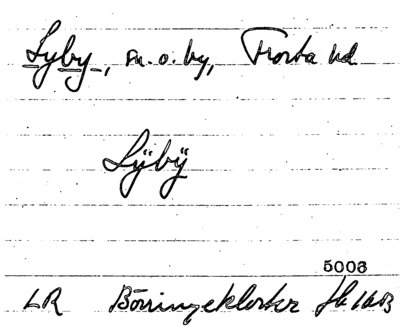 Lyby, sn. o. by, Frosta hd
Lÿbÿ
5006
LR Börringekloster Jb 1603